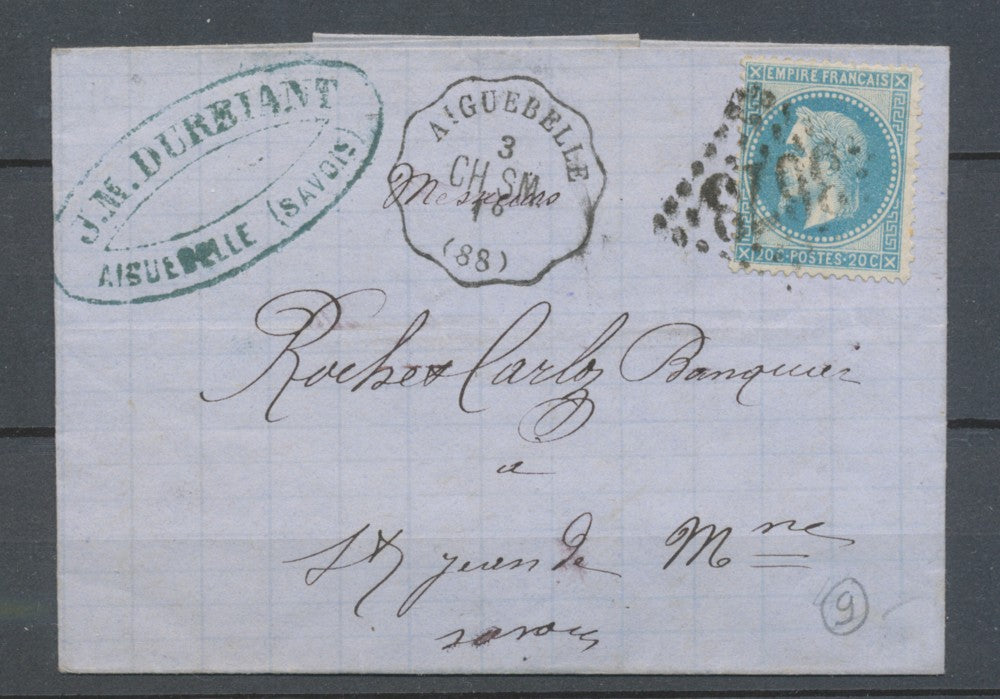 J.M. DUREIANT
AIGUEBELLE (SAVOIE)
AIGUEBELLE
3
CH SM
16
(88)
EMPIRE FRANÇAIS
20C-POSTES-20C
Messieurs
Roche & Carloz Banquier
a
St jean de Mne
savoie
9